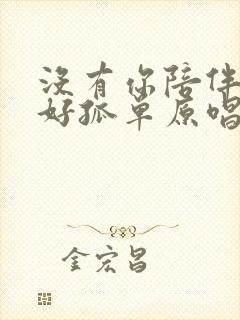 没有你陪伴
好孤单原唱
金宏昌